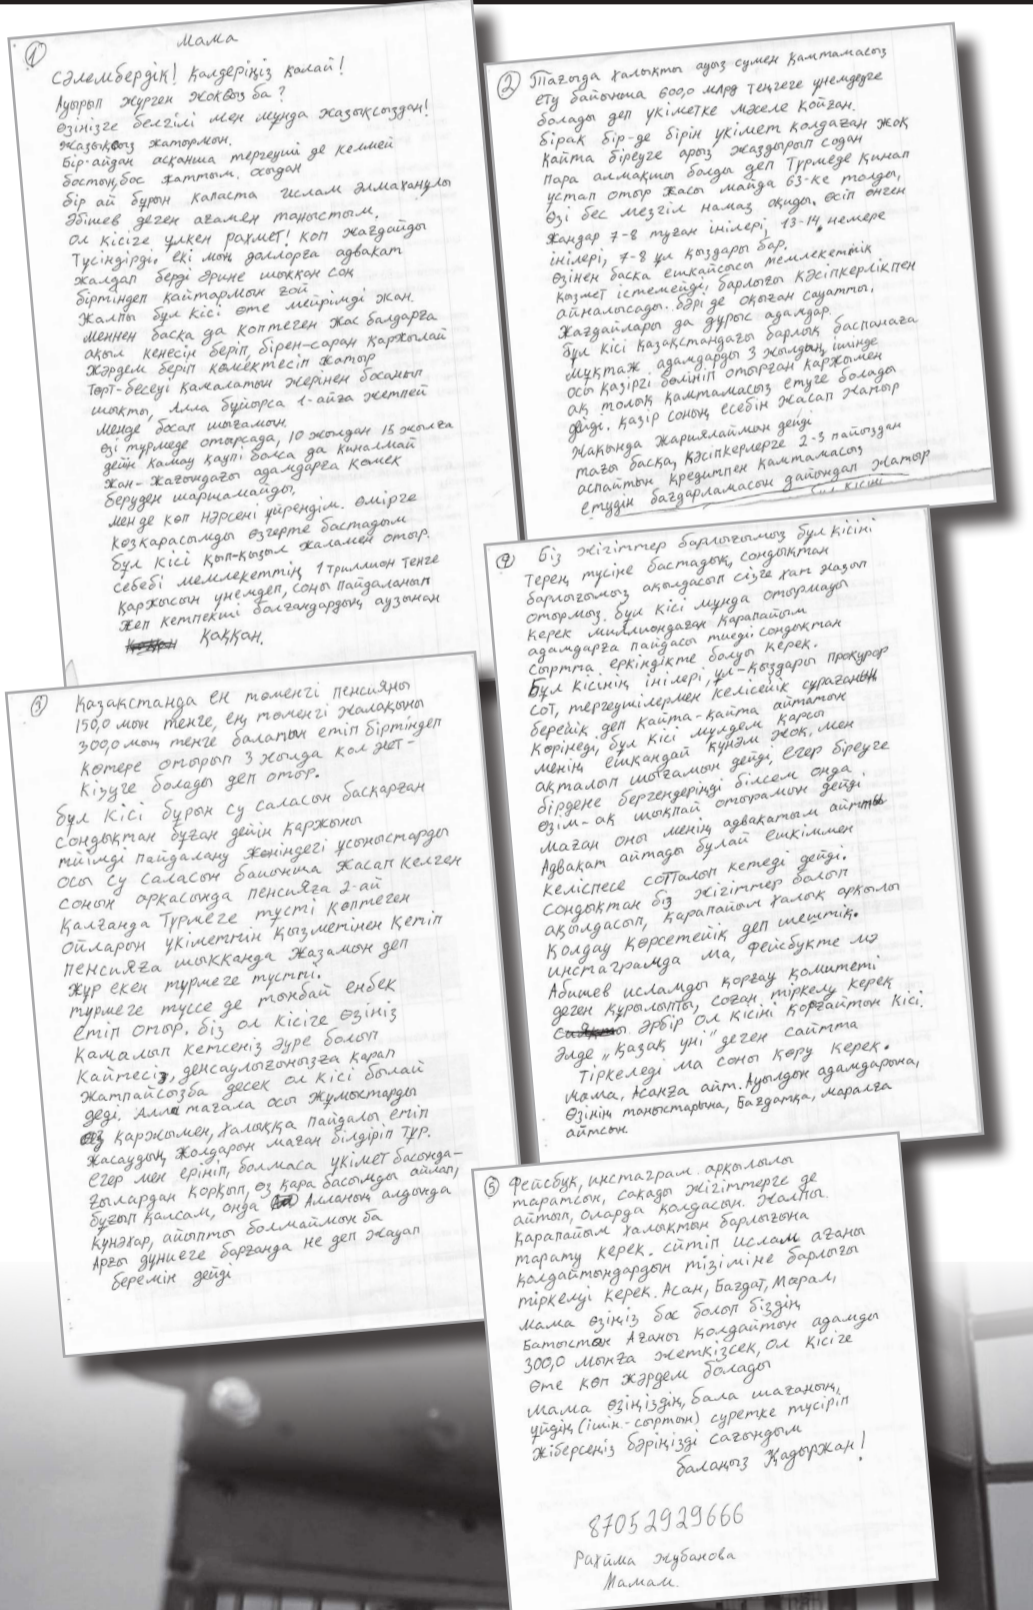 ①
Мама
Сәлембердік! Қалдеріңіз қалай!
Ауырып жүрген жоқсыз ба?
Өзіңізге белгілі мен мұнда жазықсыздан!
Жазықсыз жатырмын.
Бір-айдан асқанша тергеуші де келмей
бостың,бос жаттым. Осыдан
бір ай бұрын капаста Ислам Әлмаханұлы
Әбішев деген ағамен таныстым.
Ол кісіге үлкен рахмет! Көп жағдайды
Түсіндірді. екі мың долларға адвакат
жалдап берді әрине шыққан соң
біртіндеп қайтармын ғой
Жалпы бұл кісі өте мейрімді жан.
Меннен басқа да көптеген жас балдарға
ақыл кеңесін беріп, бірен-саран қаржылай
жәрдем беріп көмектесіп жатыр
Төрт-бесеуі қамалатын жерінен босанып
шықты, Алла бұйырса 1-айға жетпей
менде босап шығамын.
Өзі түрмеде отырсада, 10 жылдан 15 жылға
дейін қамау қаупі болса да қиналмай
жан-жағындағы адамдарға көмек
беруден шаршамайды.
Мен де көп нәрсені үйрендім. Өмірге
көзқарасымды өзгерте бастадым
бұл кісі қып-қызыл жаламен отыр.
себебі мемлекеттің 1 триллион теңге
қаржысын үнемдеп, соны пайдаланып
жеп кетпекші болғандардың аузынан
қаққан.
② Тағыда халықты ауыз сумен қамтамасыз
ету байынша 600,0 млрд теңгеге үнемдеуге
болады деп үкіметке мәселе қойған.
бірақ бір-де бірін үкімет қолдаған жоқ
қайта біреуге арыз жаздырып содан
пара алмақшы болды деп Түрмеде қинап
ұстап отыр жасы майда 63-ке толды,
Өзі бес мезгіл намаз оқиды. Өсіп өнген
жандар 7-8 туған інілері, 13-14 немере
інілері, 7-8 ұл қыздары бар.
Өзінен басқа ешқайсысы мемлекеттік
қызмет істемейді, барлығы кәсіпкерлікпен
айналысады. бәрі де оқыған сауатты,
жағдайлары да дұрыс адамдар.
бұл кісі қазақстандағы барлық баспанаға
мұқтаж адамдарды 3 жылдың ішінде
осы қазіргі бөлініп отырған қаржымен
ақ толық қамтамасыз етуге болады
дейді. қазір соның есебін жасап жатыр
Жақында жариялаймын дейді
тағы басқа, кәсіпкерлерге 2-3 пайыздан
аспайтын кредитпен қамтамасыз
етудің бағдарламасын дайындап жатыр
③ Қазақстанда ең төменгі пенсияны
150,0 мың теңге, ең төменгі жалақыны
300,0 мың теңге балатын етіп біртіндеп
көтере отырып 3 жылда қол жет-
кізуге болады деп отыр.
бұл кісі бұрын су саласын басқарған
сондықтан бұған дейін қаржыны
тиімді пайдалану жөніндегі ұсыныстарды
осы су саласын байынша жасап келген
соның арқасында пенсияға 2-ай
қалғанда Түрмеге түсті көптеген
ойларын үкіметтің қызметінен кетіп
пенсияға шыққанда жазамын деп
жүр екен түрмеге түсті.
түрмеге түссе де тынбай еңбек
етіп отыр. біз ол кісіге өзіңіз
қамалып кетсеңіз әуре болып
қайтесіз, денсаулығыңызға қарап
жатпайсызба десек ол кісі былай
деді. Алла тағала осы жұмыстарды
өз қаржымен, халыққа пайдалы етіп
жасаудың жолдарын маған білдіріп тұр.
егер мен ерініп, болмаса үкімет басында-
ғылардан қорқып, өз қара басымды ойлап,
бұғып қалсам, онда Алланың алдында
күнәхар, айыпты болмаймын ба
Арғы дүниеге барғанда не деп жауап
беремін дейді
④ Біз жігіттер барлығымыз бұл кісіні
терең түсіне бастадық, сондықтан
барлығымыз ақылдасып сізге хат жазып
отырмыз. бұл кісі мұнда отырмауы
керек миллиондаған қарапайым
адамдарға пайдасы тиеді. сондықтан
сыртта еркіндікте болуы керек.
Бұл кісінің інілері, ұл-қыздары прокурор
сот, тергеушілермен келісейік сұрағанын
берейік деп қайта-қайта айтатын
көрінеді, бұл кісі мүлдем қарсы
менің ешқандай күнәм жоқ, мен
ақталып шығамын дейді, егер біреуге
бірдеңе бергендеріңді білсем онда
өзім-ақ шықпай отырамын дейді
маған оны менің адвакатым айтты
Адвакат айтады бұлай ешкіммен
келіспесе сотталып кетеді дейді.
Сондықтан біз жігіттер болып
ақылдасып, қарапайым халық арқылы
қолдау көрсетейік деп шештік.
инстаграмда ма, фейсбукте ма
Абишев исламды қорғау комитеті
деген құрылыпты, соған тіркелу керек
әрбір ол кісіні қорғайтын кісі.
Әлде „Қазақ үні" деген сайтта
тіркеледі ма соны көру керек.
Мама, Асанға айт. Ауылдың адамдарына,
өзінің таныстарына, Бағдатқа, маралға
айтсын.
⑤ Фейсбук, инстаграм арқылылы
таратсын, сақады жігіттерге де
айтып, оларда қолдасын. Жалпы
қарапайым халықтың барлығына
тарату керек. сйтіп ислам ағаны
қолдайтындардың тізіміне барлығы
тіркелуі керек. Асан, Бағдат, Марал,
Мама өзіңіз бас болып біздің
Батыстан Ағаны қолдайтын адамды
300,0 мыңға жеткізсек, ол кісіге
өте көп жәрдем болады
Мама өзіңіздің, бала шағаның,
үйдің (ішін-сыртын) суретке түсіріп
жіберсеңіз бәріңізді сағындым
балаңыз Қадыржан!
87052929666
Рахима Жубанова
Мамам.